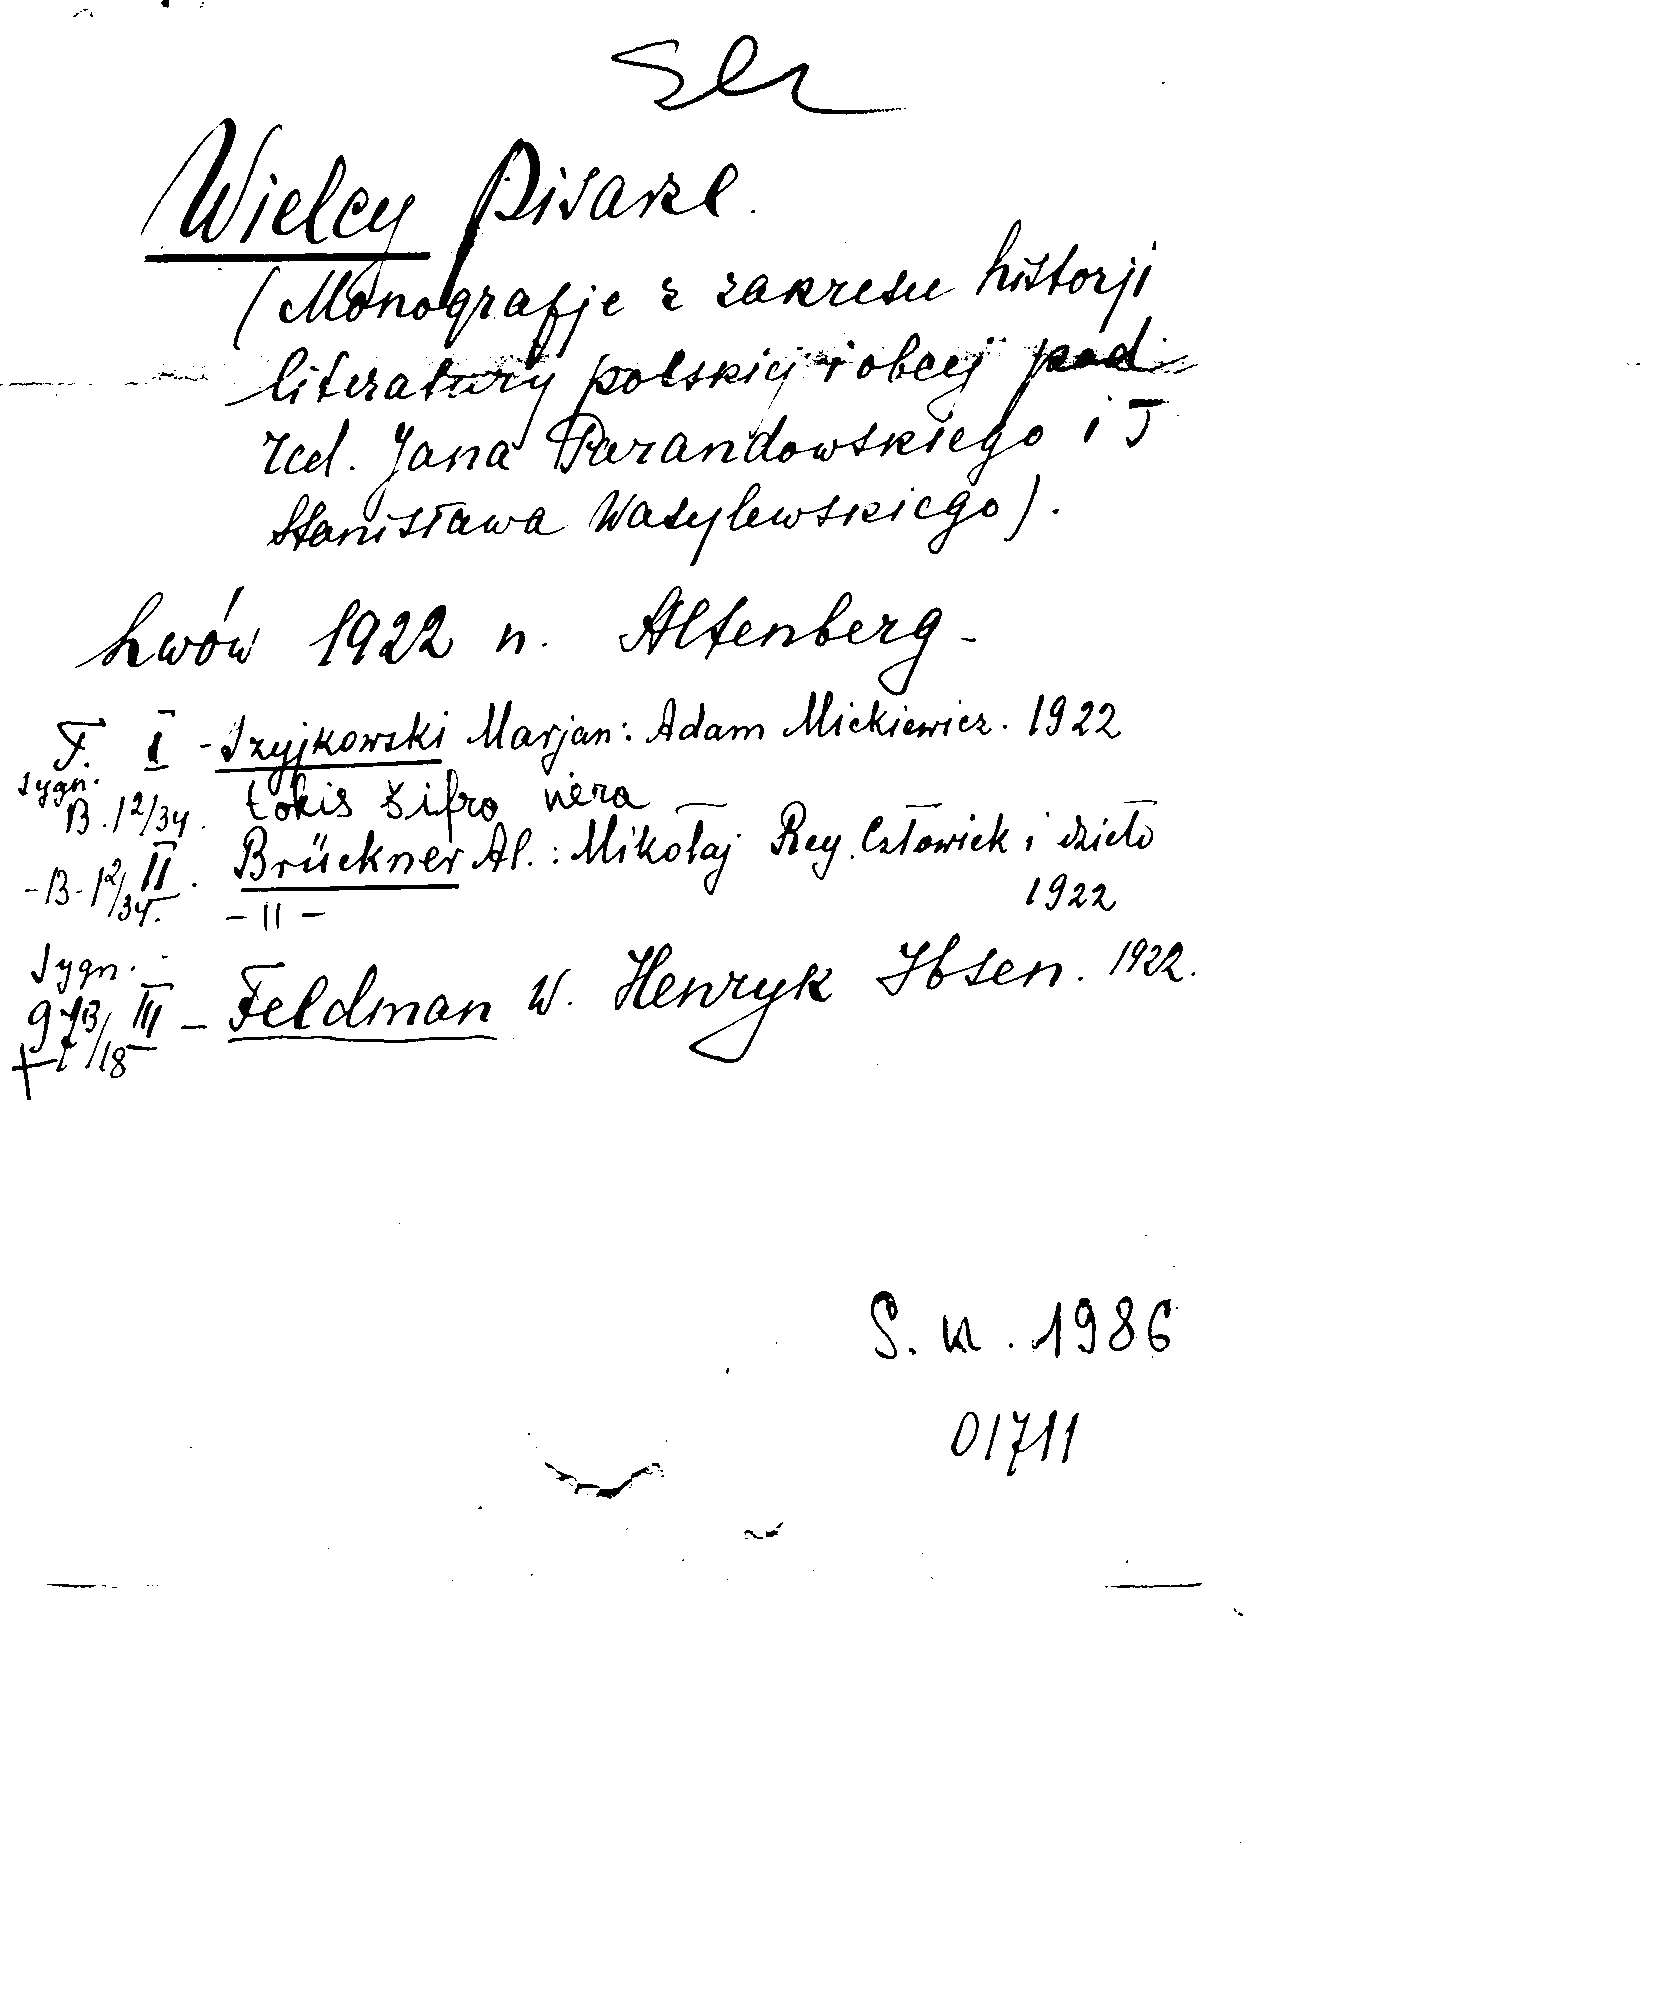 Ser
Wielcy Pisarze.
(Monografje z zakresu historji
literatury polskiej i obcej pod
red. Jana Parandowskiego i
Stanisława Wasylewskiego).
Lwów 1922 n. Altenberg -
T. I - Szyjkowski Marjan: Adam Mickiewicz. 1922
Sygn. B.1 2/34. tokis šifro nėra
-B-1 2/34. II. Brückner Al.: Mikołaj Rey. Człowiek i dzieło
- II - 1922
Sygn.
III - Feldman W. Henryk Ibsen. 1922.
S. k. 1986
01711